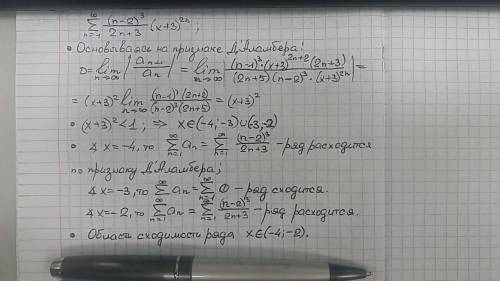 ∞ ∑ n=1 (n-2)³/2n+3 (x+3)²ⁿ ;
• Основываясь на признаке Д'Аламбера:
D = lim n→∞ |aₙ₊₁/aₙ| = lim n→∞ |(n-1)³·(x+3)²ⁿ⁺²·(2n+3)/(2n+5)(n-2)³·(x+3)²ⁿ| =
= (x+3)² lim n→∞ (n-1)³(2n+3)/(n-2)³(2n+5) = (x+3)²
• (x+3)² < 1 ; ⇒ x∈(-4;-3)∪(3,-2)
• ∢ x=-4, то ∞ ∑ n=1 aₙ = ∞ ∑ n=1 (n-2)³/2n+3 - ряд расходится
по признаку Д'Аламбера;
∢ x=-3, то ∞ ∑ n=1 aₙ = ∞ ∑ n=1 0 - ряд сходится.
∢ x=-2, то ∞ ∑ n=1 aₙ = ∞ ∑ n=1 (n-2)³/2n+3 - ряд расходится.
• Область сходимости ряда x∈(-4;-2).